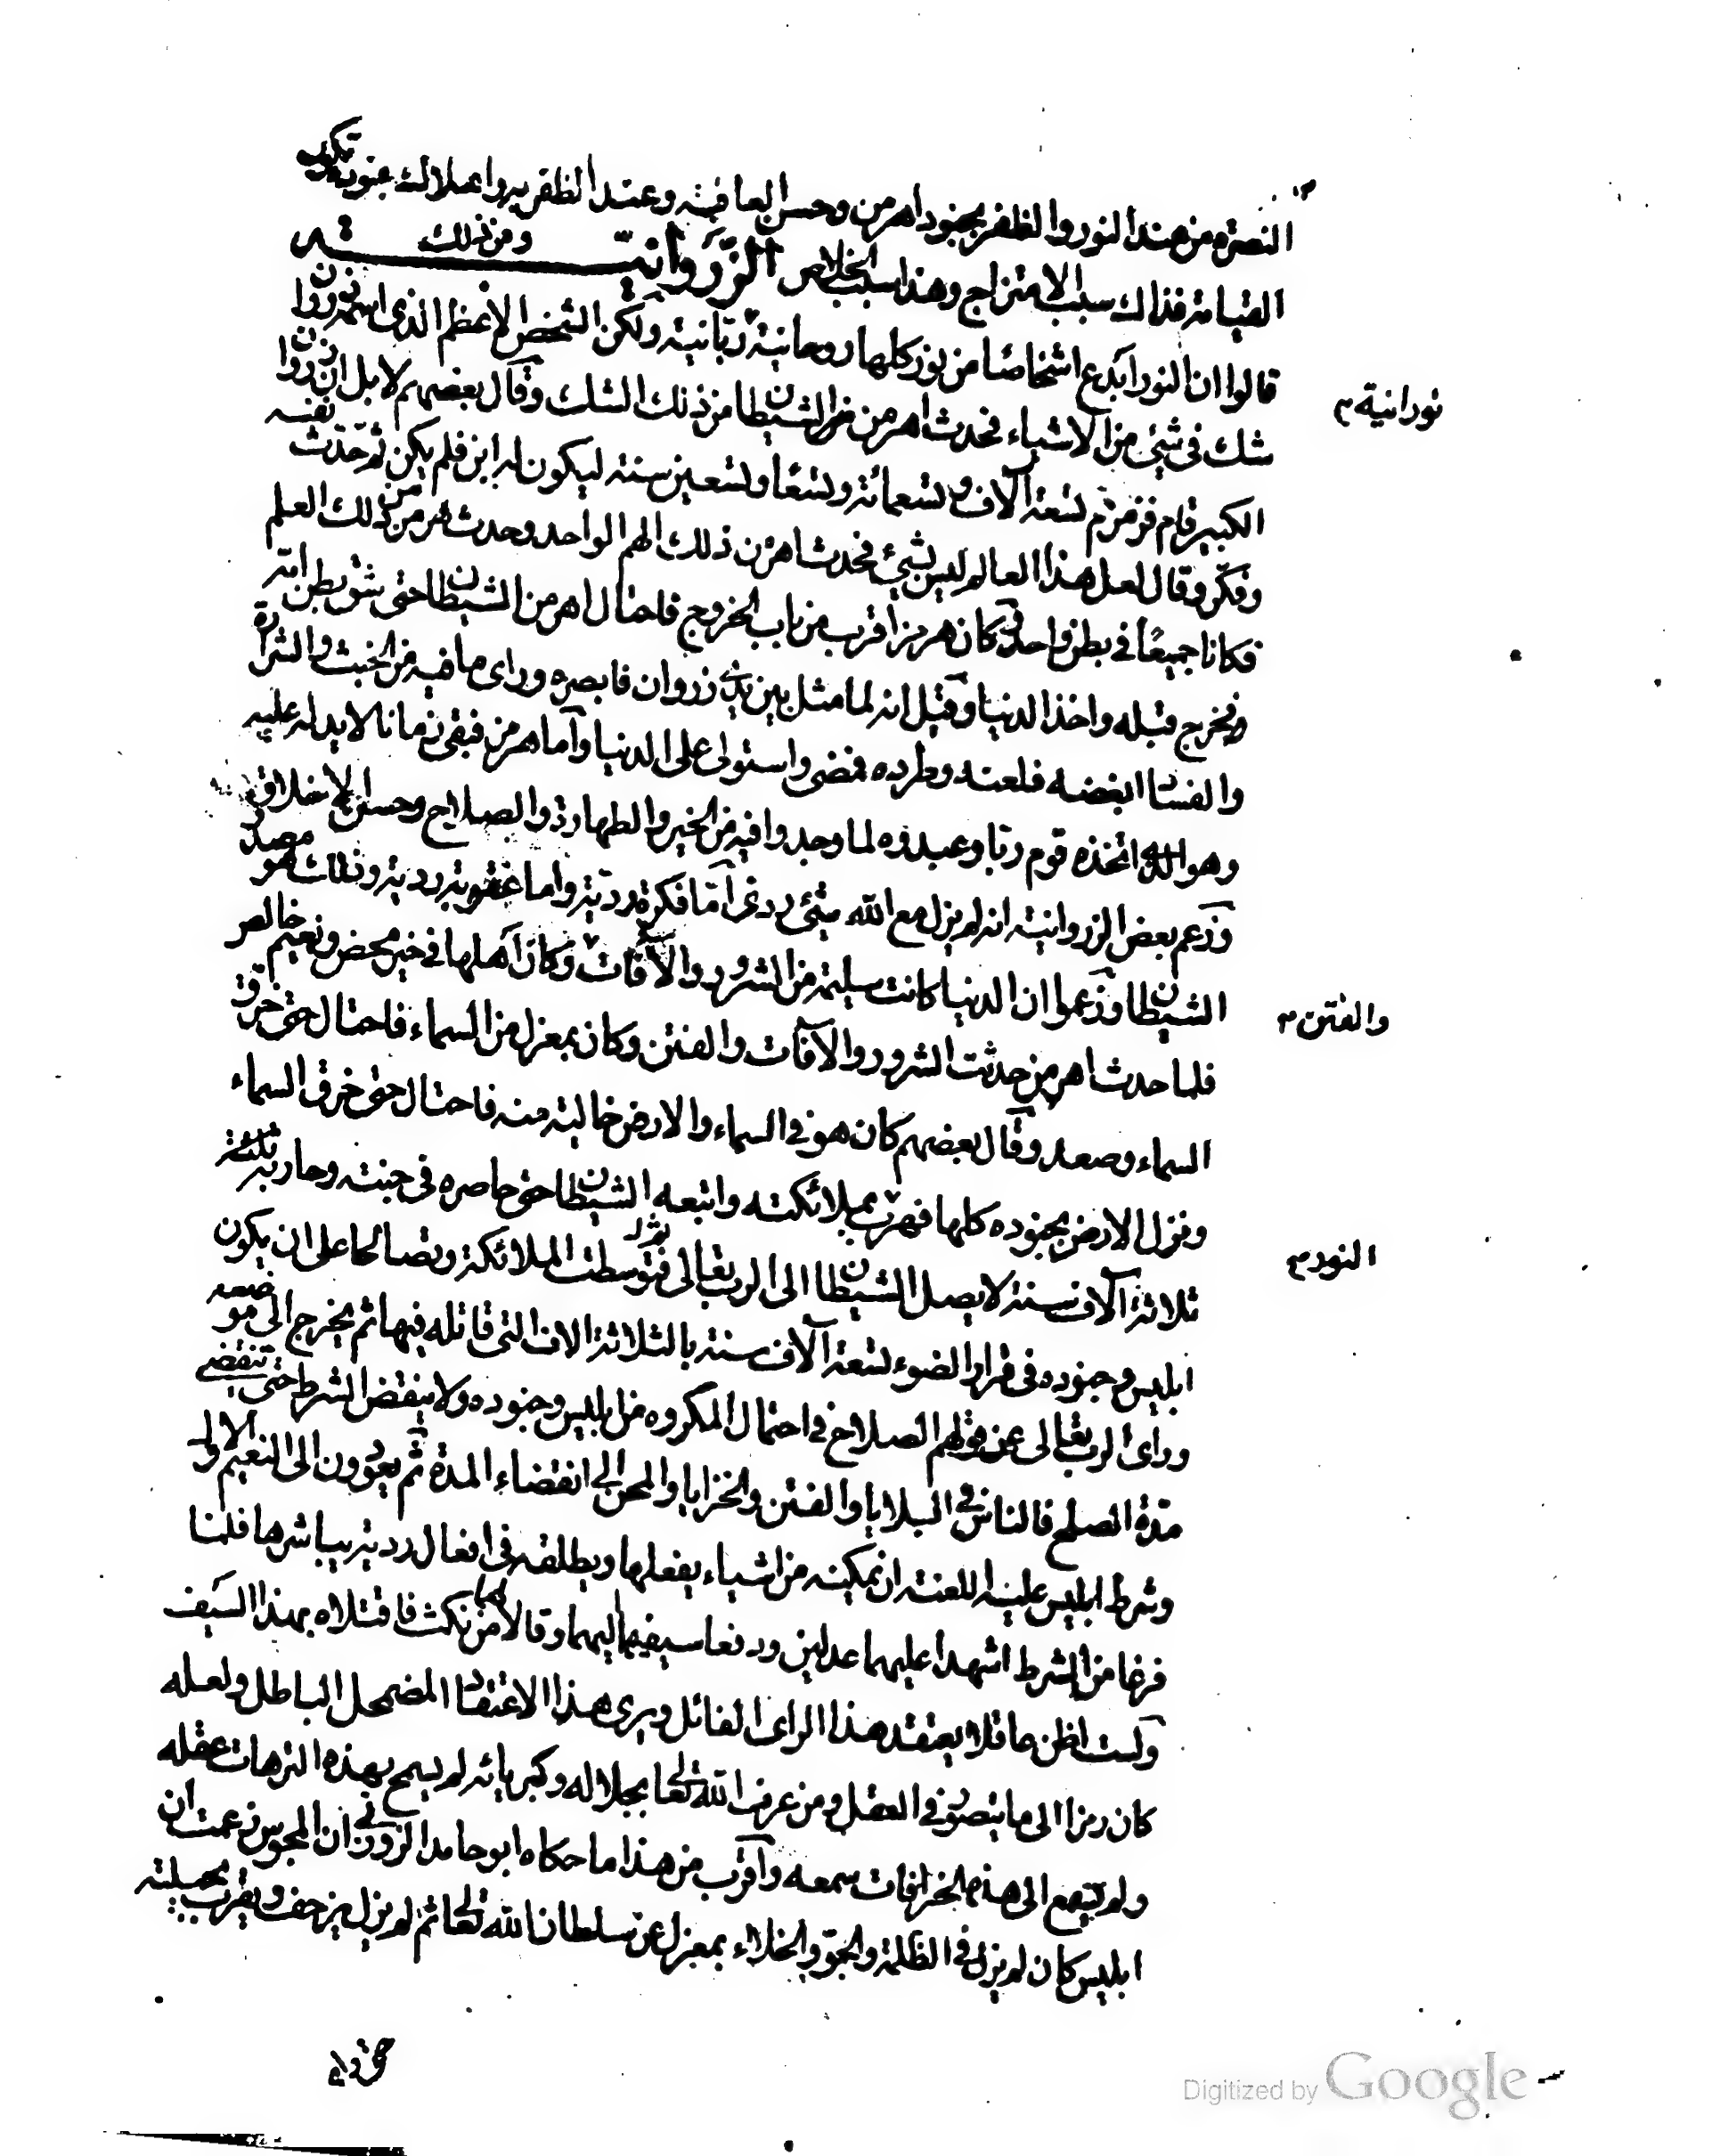 النصرة من عند النور والظفر بجنود اهرمن وحسن العاقبة وعند الظفر به واهلاك جنوده تكون
القيامة فذاك سبب الامتزاج وهذا سبب الخلاص ومن ذلك الزروانية
قالوا ان النور ابدع اشخاصا من نور كلها روحانية ربانية ولكن الشخص الاعظم الذى اسمه زروان
نورانية
شك فى شئ من الاشياء فحدث اهرمن الشيطان من ذلك الشك وقال بعضهم لا بل ان زروان
الكبير قام فزمزم تسعة آلاف وتسعمائة وتسعا وتسعين سنة ليكون له ابن فلم يكن ثم حدث نفسه
وفكر وقال لعل هذا العالم ليس بشئ فحدث اهرمن من ذلك الهم الواحد وحدث هرمز من ذلك العلم
فكانا جميعا فى بطن واحد وكان هرمز اقرب من باب الخروج فاحتال اهرمن الشيطان حتى شق بطن امه
فخرج قبله واخذ الدنيا وقيل انه لما مثل بين يدى زروان فابصره وراى ما فيه من الخبث والشرارة
والفساد ابغضه فلعنه وطرده فمضى واستولى على الدنيا واما هرمز فبقى زمانا لا يد له عليه
وهو الذى اتخذه قوم ربا وعبدوه لما وجدوا فيه من الخير والطهارة والصلاح وحسن الاخلاق
وزعم بعض الزروانية انه لم يزل مع الله شئ ردئ اما فكرة ردية واما عفونة ردية وذلك هو مصدر
الشيطان وزعموا ان الدنيا كانت سليمة من الشرور والآفات وكان اهلها فى خير محض ونعيم خالص
والفتن
فلما حدث اهرمن حدثت الشرور والآفات والفتن وكان بمعزل من السماء فاحتال حتى خرق
السماء وصعد وقال بعضهم كان هو فى السماء والارض خالية منه فاحتال حتى خرق السماء
ونزل الارض بجنوده كلها فهرب بملائكته واتبعه الشيطان حتى حاصره فى جنته وحاربه ثلثة
النور
ثلاثة آلاف سنة لا يصل الشيطان الى الرب تعالى فتوسطت الملائكة وتصالحا على ان يكون
ابليس وجنوده فى قرار الضوء تسعة آلاف سنة بالثلاثة الاف التى قاتله فيها ثم يخرج الى موضعه
وراى الرب تعالى عن قولهم الصلاح فى احتمال المكروه من ابليس وجنوده ولا ينقض الشرط حتى تنقضى
مدة الصلح فالناس فى البلايا والفتن والخزايا والمحن الى انقضاء المدة ثم يعودون الى النعيم الاول
وشرط ابليس عليه اللعنة ان يمكنه من اشياء يفعلها ويطلقه فى افعال ردية يباشرها فلما
فرغا من الشرط اشهدا عليهما عدلين ودفعا سيفيهما اليهما وقالا لهما من نكث فاقتلاه بهذا السيف
ولست اظن عاقلا يعتقد هذا الراى الفائل ويرى هذا الاعتقاد المضمحل الباطل ولعله
كان رمزا الى ما يتصور فى العقل ومن عرف الله تعالى بجلاله وكبريائه لم يسمح بهذه الترهات عقله
ولم يسمع الى هذه الخرافات سمعه واقرب من هذا ما حكاه ابو حامد الزوزنى ان المجوس زعمت ان
ابليس كان لم يزل فى الظلمة والجو والخلاء بمعزل عن سلطان الله تعالى ثم لم يزل يزحف ويقرب بحيلته
حتى راى
Digitized by Google